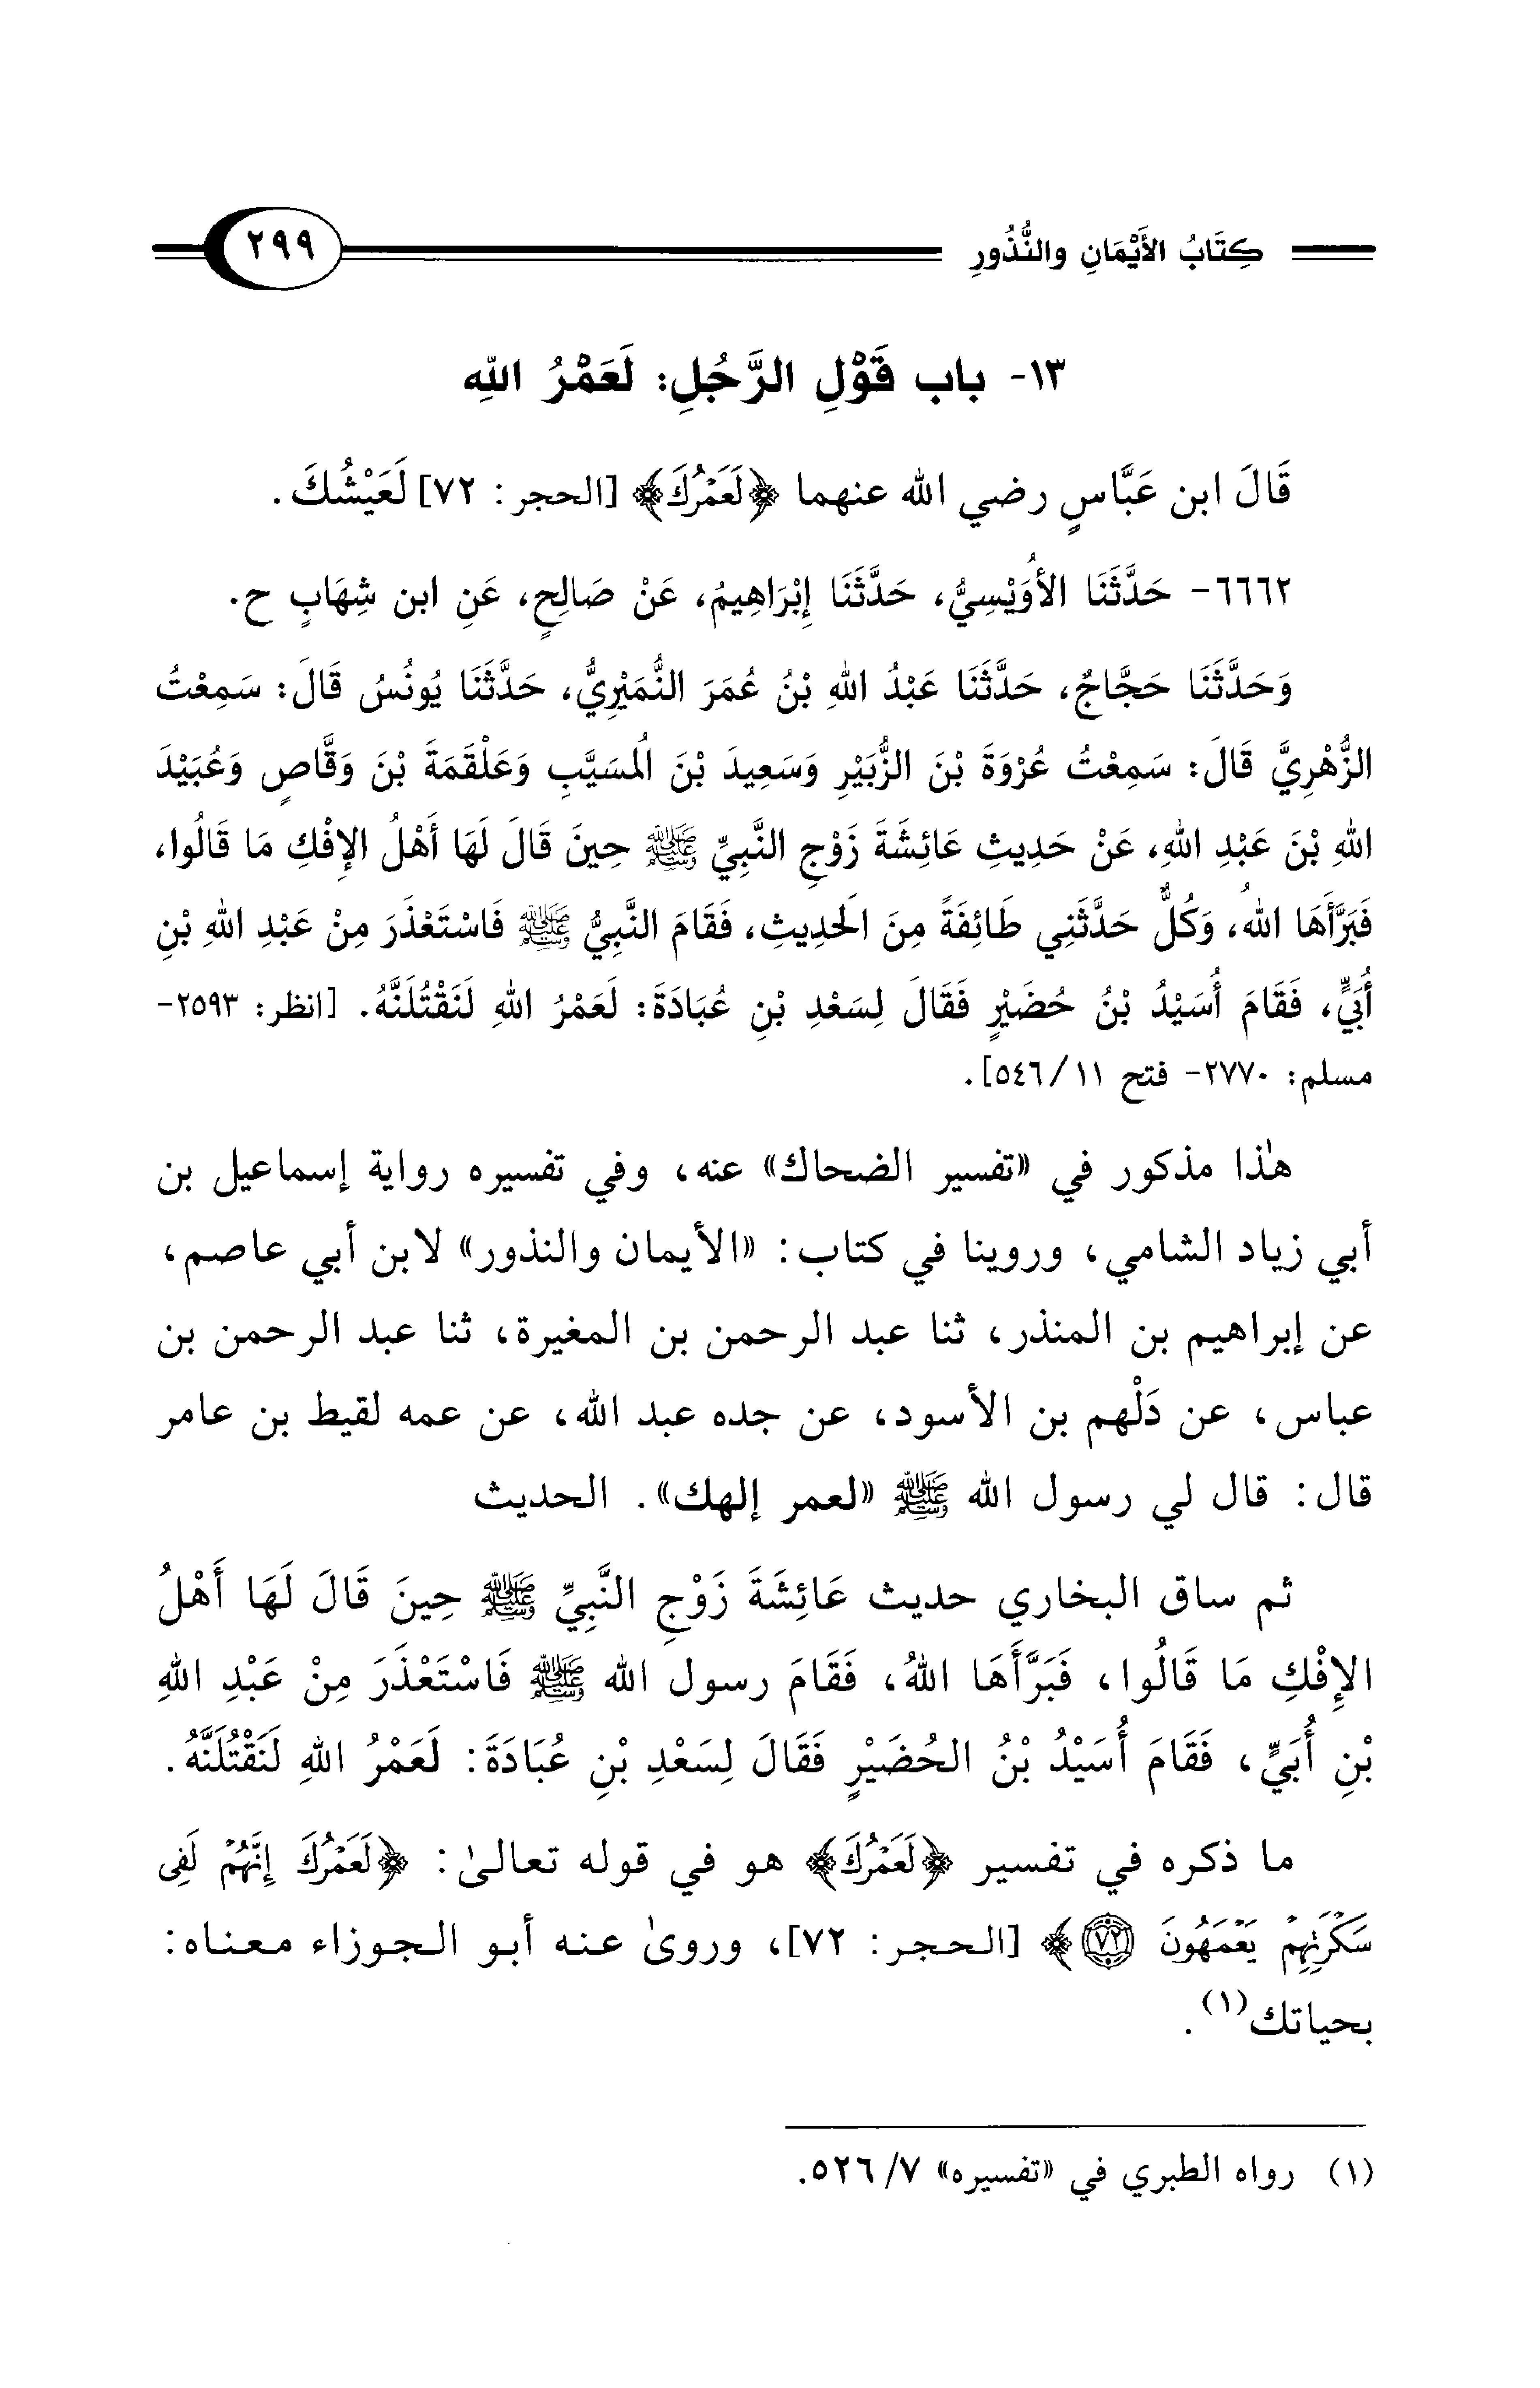 كِتَابُ الأَيْمَانِ والنُّذُورِ
٢٩٩
١٣- باب قَوْلِ الرَّجُلِ: لَعَمْرُ اللهِ
قَالَ ابن عَبَّاسٍ رضي الله عنهما ﴿لَعَمْرُكَ﴾ [الحجر: ٧٢] لَعَيْشُكَ.
٦٦٦٢- حَدَّثَنَا الأُوَيْسِيُّ، حَدَّثَنَا إِبْرَاهِيمُ، عَنْ صَالِحٍ، عَنِ ابن شِهَابٍ ح.
وَحَدَّثَنَا حَجَّاجٌ، حَدَّثَنَا عَبْدُ اللهِ بْنُ عُمَرَ النُّمَيْرِيُّ، حَدَّثَنَا يُونُسُ قَالَ: سَمِعْتُ
الزُّهْرِيَّ قَالَ: سَمِعْتُ عُرْوَةَ بْنَ الزُّبَيْرِ وَسَعِيدَ بْنَ الُمسَيَّبِ وَعَلْقَمَةَ بْنَ وَقَّاصٍ وَعُبَيْدَ
اللهِ بْنَ عَبْدِ اللهِ، عَنْ حَدِيثِ عَائِشَةَ زَوْجِ النَّبِيِّ ﷺ حِينَ قَالَ لَهَا أَهْلُ الإِفْكِ مَا قَالُوا،
فَبَرَّأَهَا اللهُ، وَكُلٌّ حَدَّثَنِي طَائِفَةً مِنَ الَحدِيثِ، فَقَامَ النَّبِيُّ ﷺ فَاسْتَعْذَرَ مِنْ عَبْدِ اللهِ بْنِ
أُبَيٍّ، فَقَامَ أُسَيْدُ بْنُ حُضَيْرٍ فَقَالَ لِسَعْدِ بْنِ عُبَادَةَ: لَعَمْرُ اللهِ لَنَقْتُلَنَّهُ. [انظر: ٢٥٩٣-
مسلم: ٢٧٧٠- فتح ١١/٥٤٦].
هذا مذكور في «تفسير الضحاك» عنه، وفي تفسيره رواية إسماعيل بن
أبي زياد الشامي، وروينا في كتاب: «الأيمان والنذور» لابن أبي عاصم،
عن إبراهيم بن المنذر، ثنا عبد الرحمن بن المغيرة، ثنا عبد الرحمن بن
عباس، عن دَلْهم بن الأسود، عن جده عبد الله، عن عمه لقيط بن عامر
قال: قال لي رسول الله ﷺ «لعمر إلهك». الحديث
ثم ساق البخاري حديث عَائِشَةَ زَوْجِ النَّبِيِّ ﷺ حِينَ قَالَ لَهَا أَهْلُ
الإِفْكِ مَا قَالُوا، فَبَرَّأَهَا اللهُ، فَقَامَ رسول الله ﷺ فَاسْتَعْذَرَ مِنْ عَبْدِ اللهِ
بْنِ أُبَيٍّ، فَقَامَ أُسَيْدُ بْنُ الحُضَيْرٍ فَقَالَ لِسَعْدِ بْنِ عُبَادَةَ: لَعَمْرُ اللهِ لَنَقْتُلَنَّهُ.
ما ذكره في تفسير ﴿لَعَمْرُكَ﴾ هو في قوله تعالىٰ: ﴿لَعَمْرُكَ إِنَّهُمْ لَفِى
سَكْرَتِهِمْ يَعْمَهُونَ ٧٢﴾ [الحجر: ٧٢]، وروىٰ عنه أبو الجوزاء معناه:
بحياتك(١).
(١) رواه الطبري في «تفسيره» ٧/ ٥٢٦.